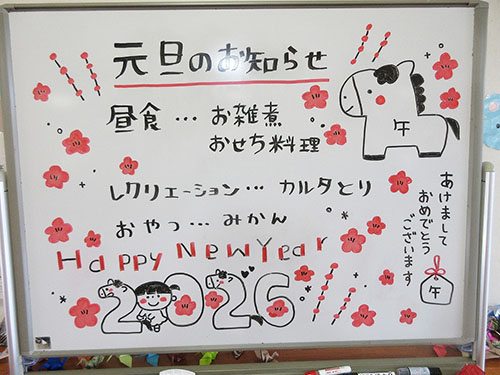 元旦のお知らせ
昼食 … お雑煮
おせち料理
午
レクリエーション … カルタとり
おやつ … みかん
あけまして
おめでとう
ございます
午
Happy New Year
2026